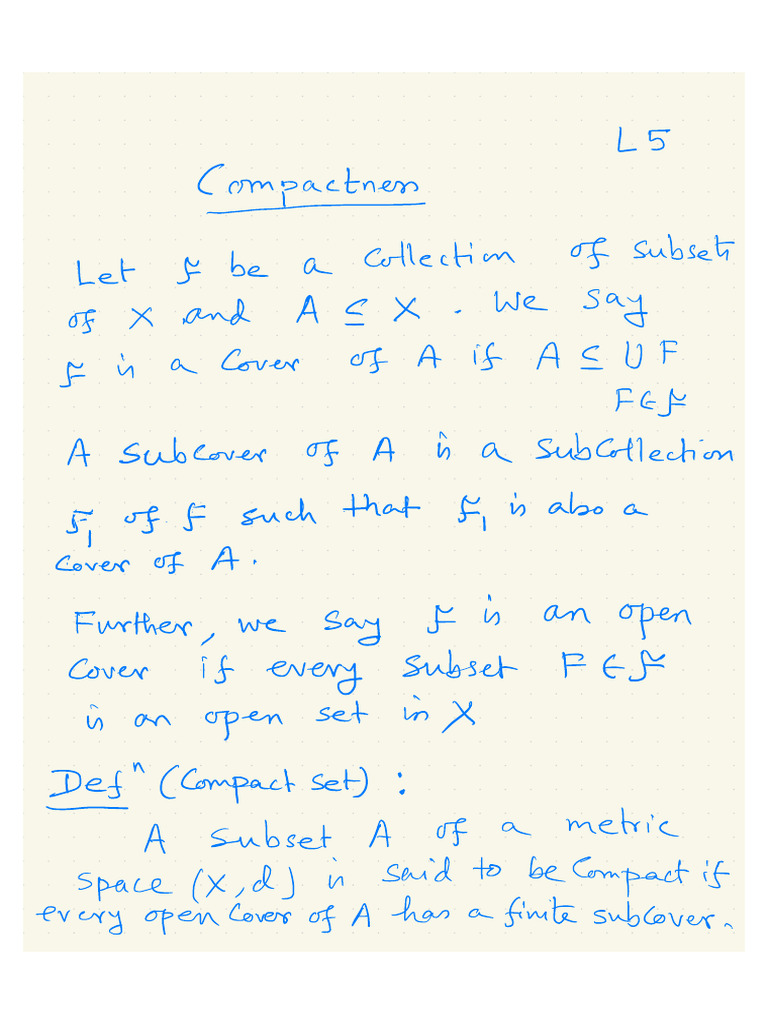 L5
Compactness
Let Ƒ be a collection of subsets
of X and A ⊆ X. We say
Ƒ is a cover of A if A ⊆ ∪ F
F∈Ƒ
A subcover of A is a subcollection
Ƒ₁ of Ƒ such that Ƒ₁ is also a
cover of A.
Further, we say Ƒ is an open
cover if every subset F ∈ Ƒ
is an open set in X
Defⁿ (Compact set) :
A subset A of a metric
space (X, d) is said to be compact if
every open cover of A has a finite subcover.